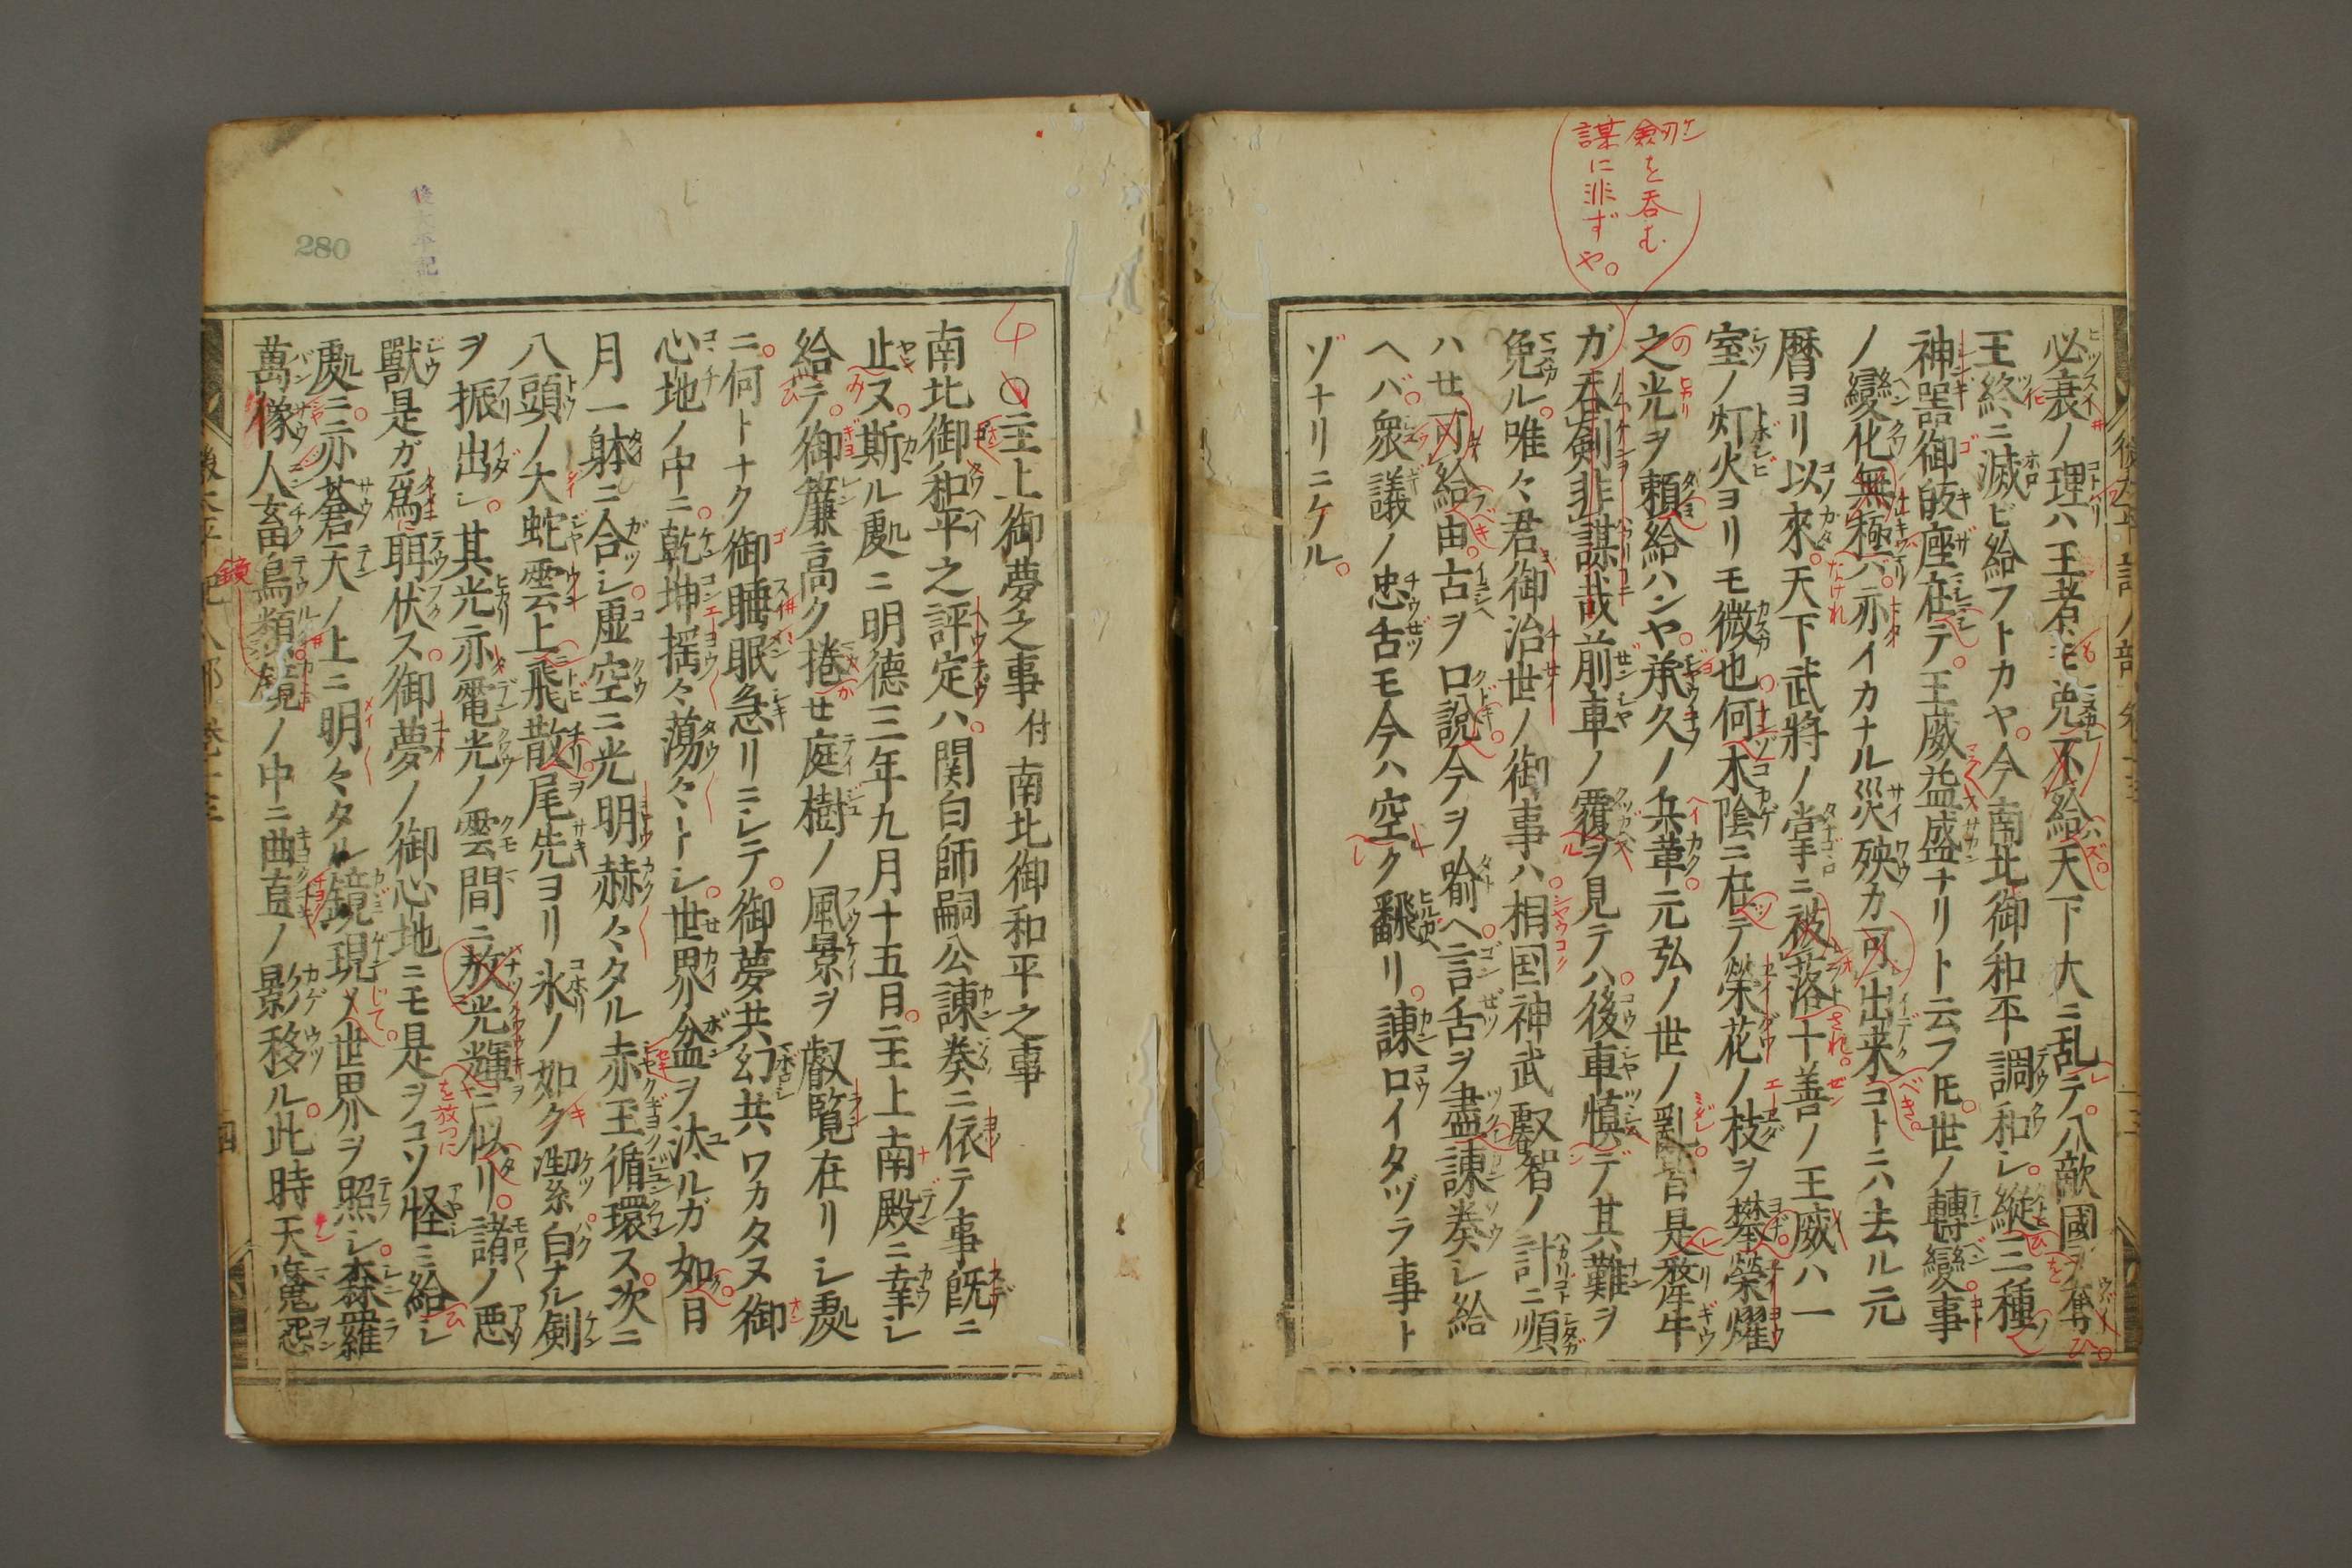 剱を呑む
謀に非ずや。
必衰ノ理ハ王者モ免不給天下大ニ乱テ八敵國ヲ奪
王終ニ滅ビ給フトカヤ今南北御和平調和シ縦三種
神器御皈座在テ王威益盛ナリト云フ𪜈世ノ轉變事
ノ變化無極ハ亦イカナル災殃カ可出来コトニハ去ル元
暦ヨリ以來天下武將ノ掌ニ被落十善ノ王威ハ一
室ノ灯火ヨリモ微也何木陰ニ在テ榮花ノ枝ヲ攀榮耀
之光ヲ頼給ハンヤ承久ノ兵革元弘ノ世ノ亂皆是犛牛
ガ呑剣非謀哉前車ノ覆ヲ見テハ後車慎デ其難ヲ
免ル唯々君御治世ノ御事ハ相国神武叡智ノ計ニ順
ハせ可給由古ヲ口説今ヲ喩ヘ言舌ヲ盡諌奏シ給
ヘバ衆議ノ忠舌モ今ハ空ク飜リ諌口イタヅラ事ト
ゾナリニケル
後太平記
280
○主上御夢之事付南北御和平之事
南北御和平之評定ハ関白師嗣公諌奏ニ依テ事既ニ
止ヌ斯ル處ニ明德三年九月十五日主上南殿ニ幸シ
給テ御簾高ク捲せ庭樹ノ風景ヲ叡覧在リシ處
ニ何トナク御睡眠急リニシテ御夢共幻共ワカタヌ御
心地ノ中ニ乾坤揺々蕩々トシ世界盆ヲ汰ルガ如日
月一躰ニ合シ虚空ニ光明赫々タル赤玉循環ス次ニ
八頭ノ大蛇雲上飛散尾先ヨリ氷ノ如ク潔白ナル剣
ヲ振出シ其光亦電光ノ雲間ニ放光輝ニ似リ諸ノ悪
獸是ガ爲ニ聑伏ス御夢ノ御心地ニモ是ヲコソ怪ミ給シ
處ニ亦蒼天ノ上ニ明々タル鏡現メ世界ヲ照シ森羅
萬像人畜鳥類鏡ノ中ニ曲直ノ影移ル此時天魔怨